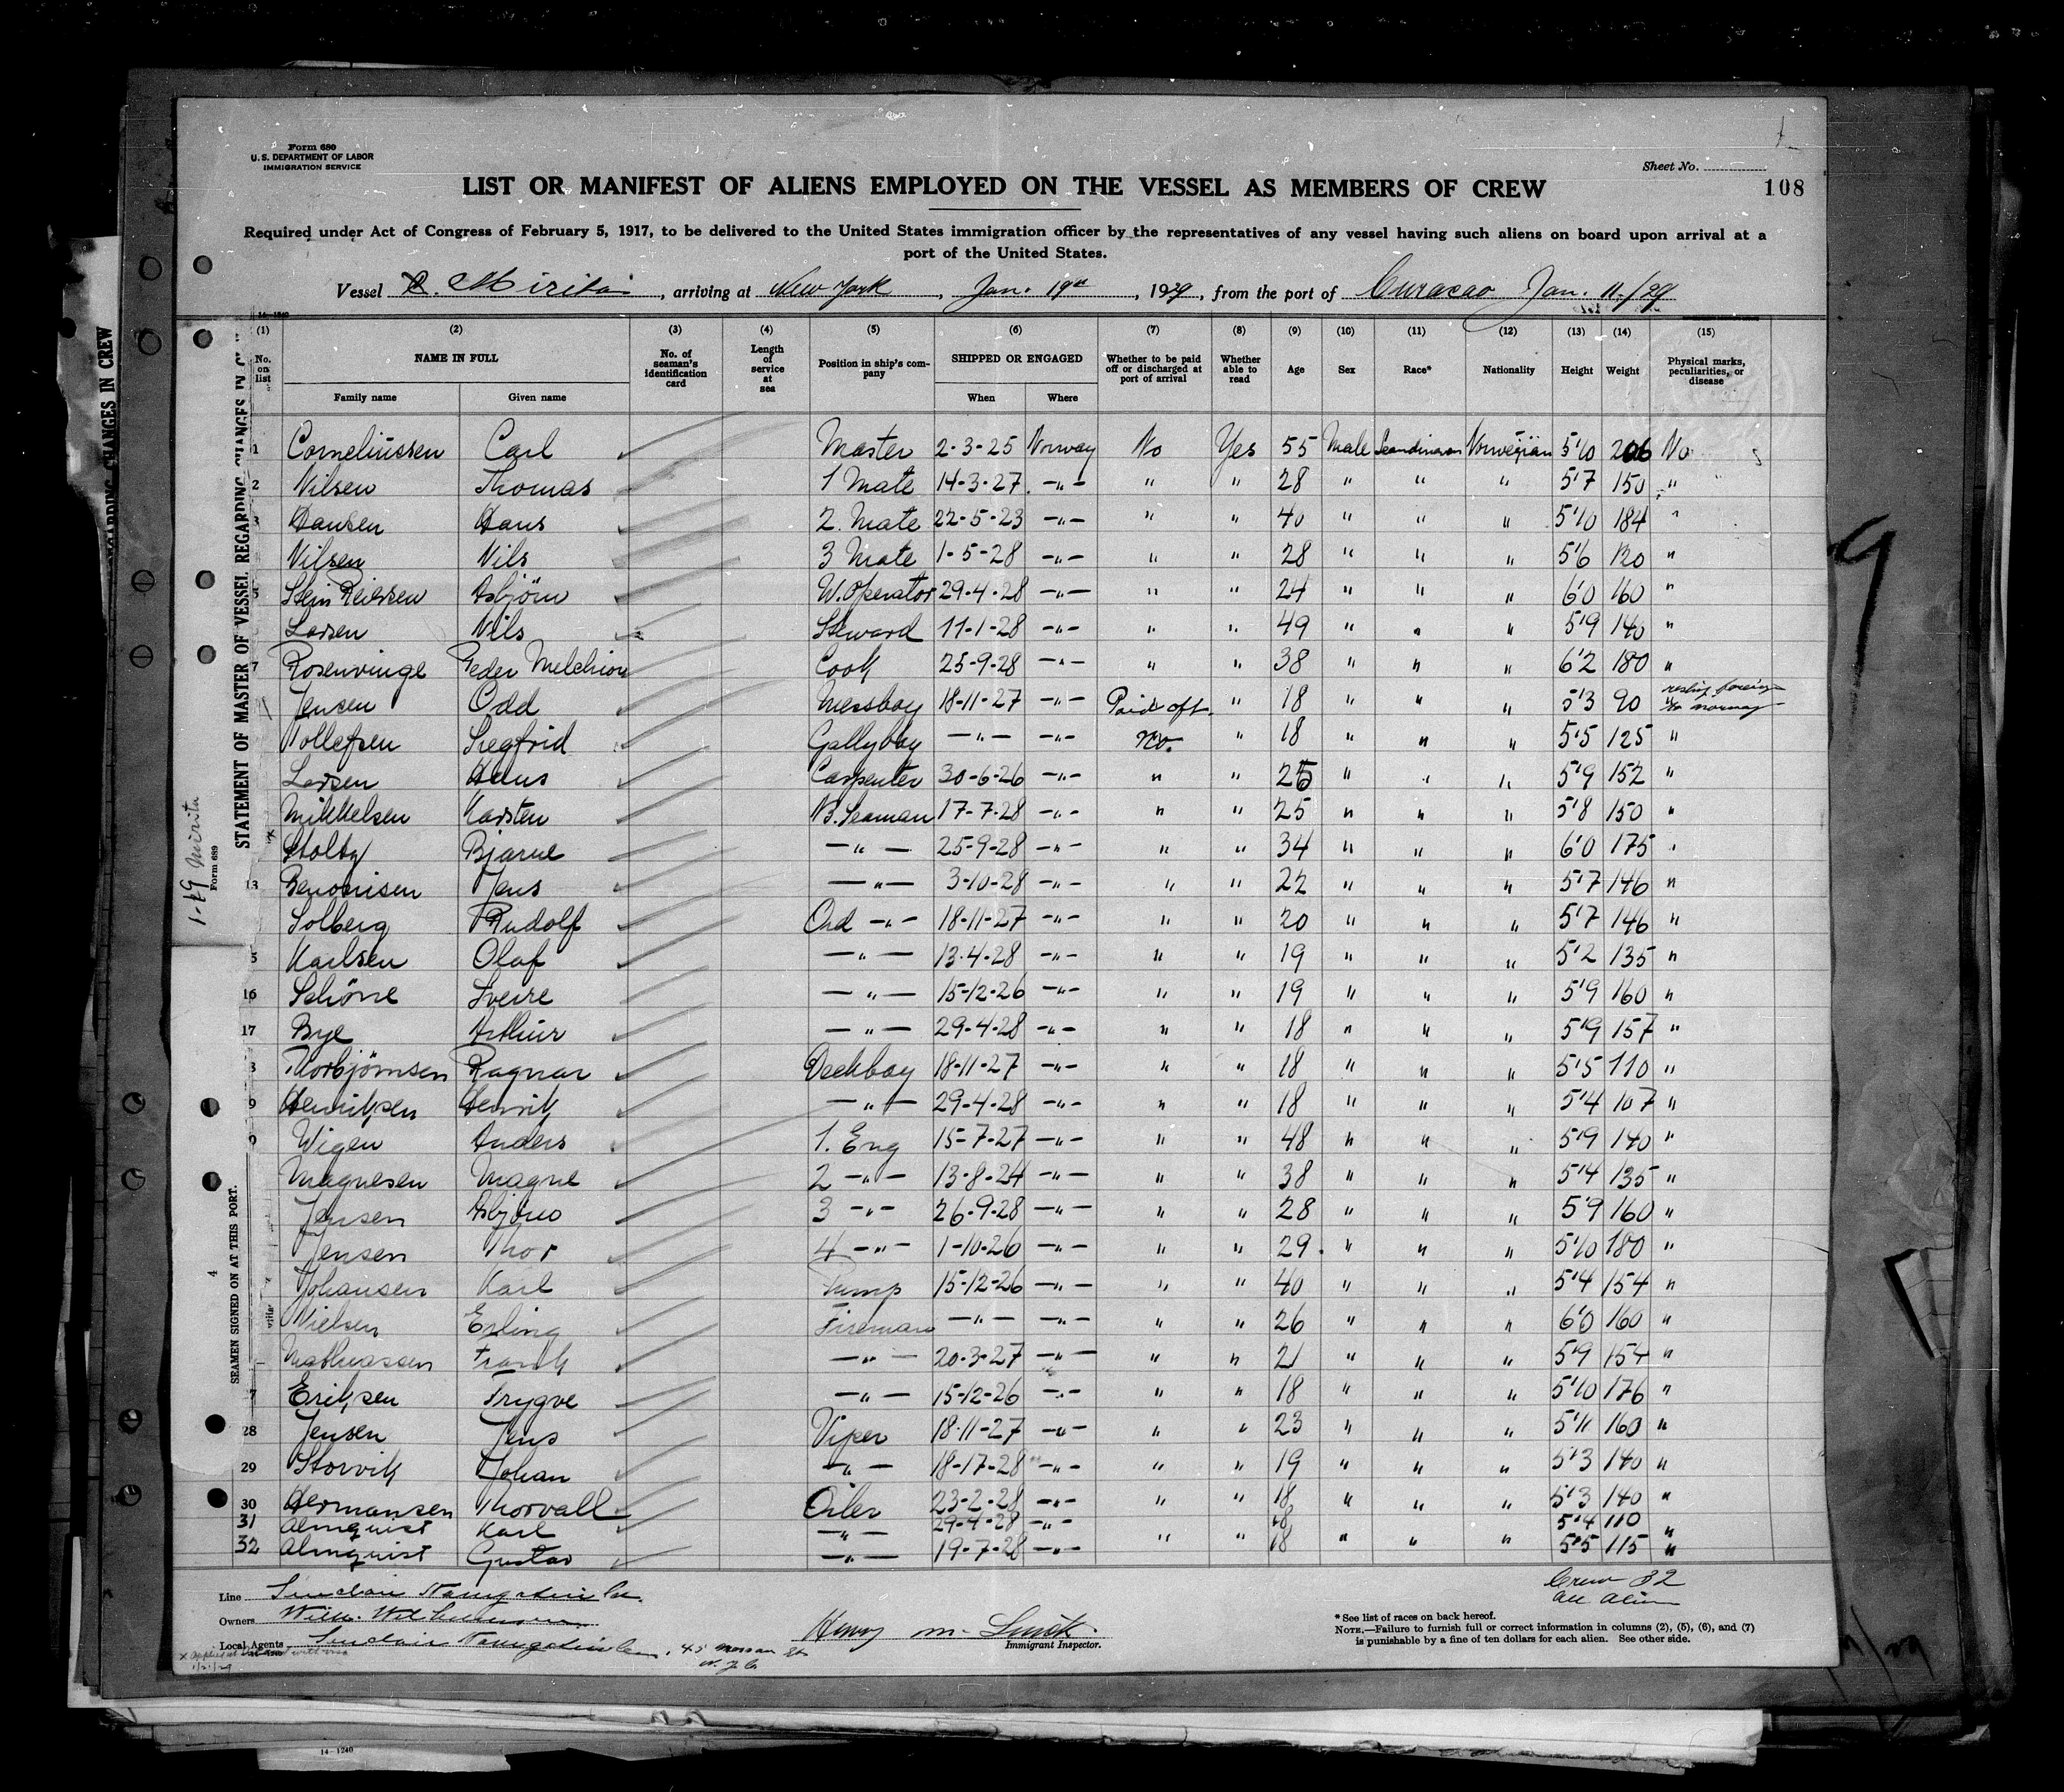 Form 680
U. S. DEPARTMENT OF LABOR
IMMIGRATION SERVICE
Sheet No.
108
LIST OR MANIFEST OF ALIENS EMPLOYED ON THE VESSEL AS MEMBERS OF CREW
Required under Act of Congress of February 5, 1917, to be delivered to the United States immigration officer by the representatives of any vessel having such aliens on board upon arrival at a
port of the United States.
Vessel Mirita, arriving at New York, Jan. 19th, 1929, from the port of Curacao Jan. 11-/29
14-1240
(1) (2) (3) (4) (5) (6) (7) (8) (9) (10) (11) (12) (13) (14) (15)
No. on list NAME IN FULL Family name Given name No. of seaman's identification card Length of service at sea Position in ship's company SHIPPED OR ENGAGED When Where Whether to be paid off or discharged at port of arrival Whether able to read Age Sex Race* Nationality Height Weight Physical marks, peculiarities, or disease
1 Corneliussen Carl Master 2-3-25 Norway No Yes 55 Male Scandinavan Norwegian 5'10 206 No
2 Nilsen Thomas 1 Mate 14-3-27 -"- " " 28 " " " 5'7 150 "
3 Hansen Hans 2. Mate 22-5-23 -"- " " 40 " " " 5'10 184 "
Nilsen Nils 3 Mate 1-5-28 -"- " " 28 " " " 5'6 120 "
5 Stein Reiersen Asbjörn W. Operator 29-4-28 -"- " " 24 " " " 6'0 160 "
Larsen Nils Steward 11-1-28 -"- " " 49 " " " 5'9 140 "
7 Rosenvinge Peder Melchior Cook 25-9-28 -"- " " 38 " " " 6'2 180 "
Jensen Odd Messboy 18-11-27 -"- Paid off. " 18 " " " 5'3 90 to Norway
Tollefsen Siegfrid Gallyboy -"- -"- No. " 18 " " " 5'5 125 "
Larsen Hans Carpenter 30-6-26 -"- " " 25 " " " 5'9 152 "
Mikkelsen Karsten B. Seaman 17-7-28 -"- " " 25 " " " 5'8 150 "
Stoltz Bjarne -"- 25-9-28 -"- " " 34 " " " 6'0 175 "
13 Benonisen Jens -"- 3-10-28 -"- " " 22 " " " 5'7 146 "
Solberg Rudolf Ord -"- 18-11-27 -"- " " 20 " " " 5'7 146 "
5 Karlsen Olaf -"- 13-4-28 -"- " " 19 " " " 5'2 135 "
16 Schöne Sverre -"- 15-12-26 -"- " " 19 " " " 5'9 160 "
17 Bye Arthur -"- 29-4-28 -"- " " 18 " " " 5'9 157 "
8 Thorbjørnsen Ragnar Deckboy 18-11-27 -"- " " 18 " " " 5'5 110 "
9 Henriksen Henrik -"- 29-4-28 -"- " " 18 " " " 5'4 107 "
0 Wigen Anders 1. Eng 15-7-27 -"- " " 48 " " " 5'9 140 "
Magnesen Magne 2 -"- 13-8-24 -"- " " 38 " " " 5'4 135 "
Jensen Asbjørn 3 -"- 26-9-28 -"- " " 28 " " " 5'9 160 "
Jensen Thor 4 -"- 1-10-26 -"- " " 29 " " " 5'10 180 "
Johansen Karl Pump 15-12-26 -"- " " 40 " " " 5'4 154 "
Nielsen Erling Fireman -"- -"- " " 26 " " " 6'0 160 "
Mathiassen Frank -"- 20-3-27 -"- " " 21 " " " 5'9 154 "
7 Eriksen Trygve -"- 15-12-26 -"- " " 18 " " " 5'10 176 "
28 Jensen Jens Viper 18-11-27 -"- " " 23 " " " 5'11 160 "
29 Storvik Johan -"- 18-17-28 -"- " " 19 " " " 5'3 140 "
30 Hermansen Thorvall Oiler 23-2-28 -"- " " 18 " " " 5'3 140 "
31 Almquist Karl -"- 29-4-28 -"- 18 5'4 110 "
32 Almquist Gustav -"- 19-7-28 -"- " " 18 " " " 5'5 115 "
Crew 32
All Alien
Line Sinclair Navigation Co.
Owners Wilh. Wilhelmsen
Local Agents Sinclair Navigation Co., 45 Nassau St.
N. Y. C.
1/21/29
Henry M. Smith
Immigrant Inspector.
* See list of races on back hereof.
NOTE.—Failure to furnish full or correct information in columns (2), (5), (6), and (7)
is punishable by a fine of ten dollars for each alien. See other side.
STATEMENT OF MASTER OF VESSEL REGARDING CHANGES IN CREW
REGARDING CHANGES IN CREW
1-19 Mirita
Form 689
SEAMEN SIGNED ON AT THIS PORT.
4
9
14-1240